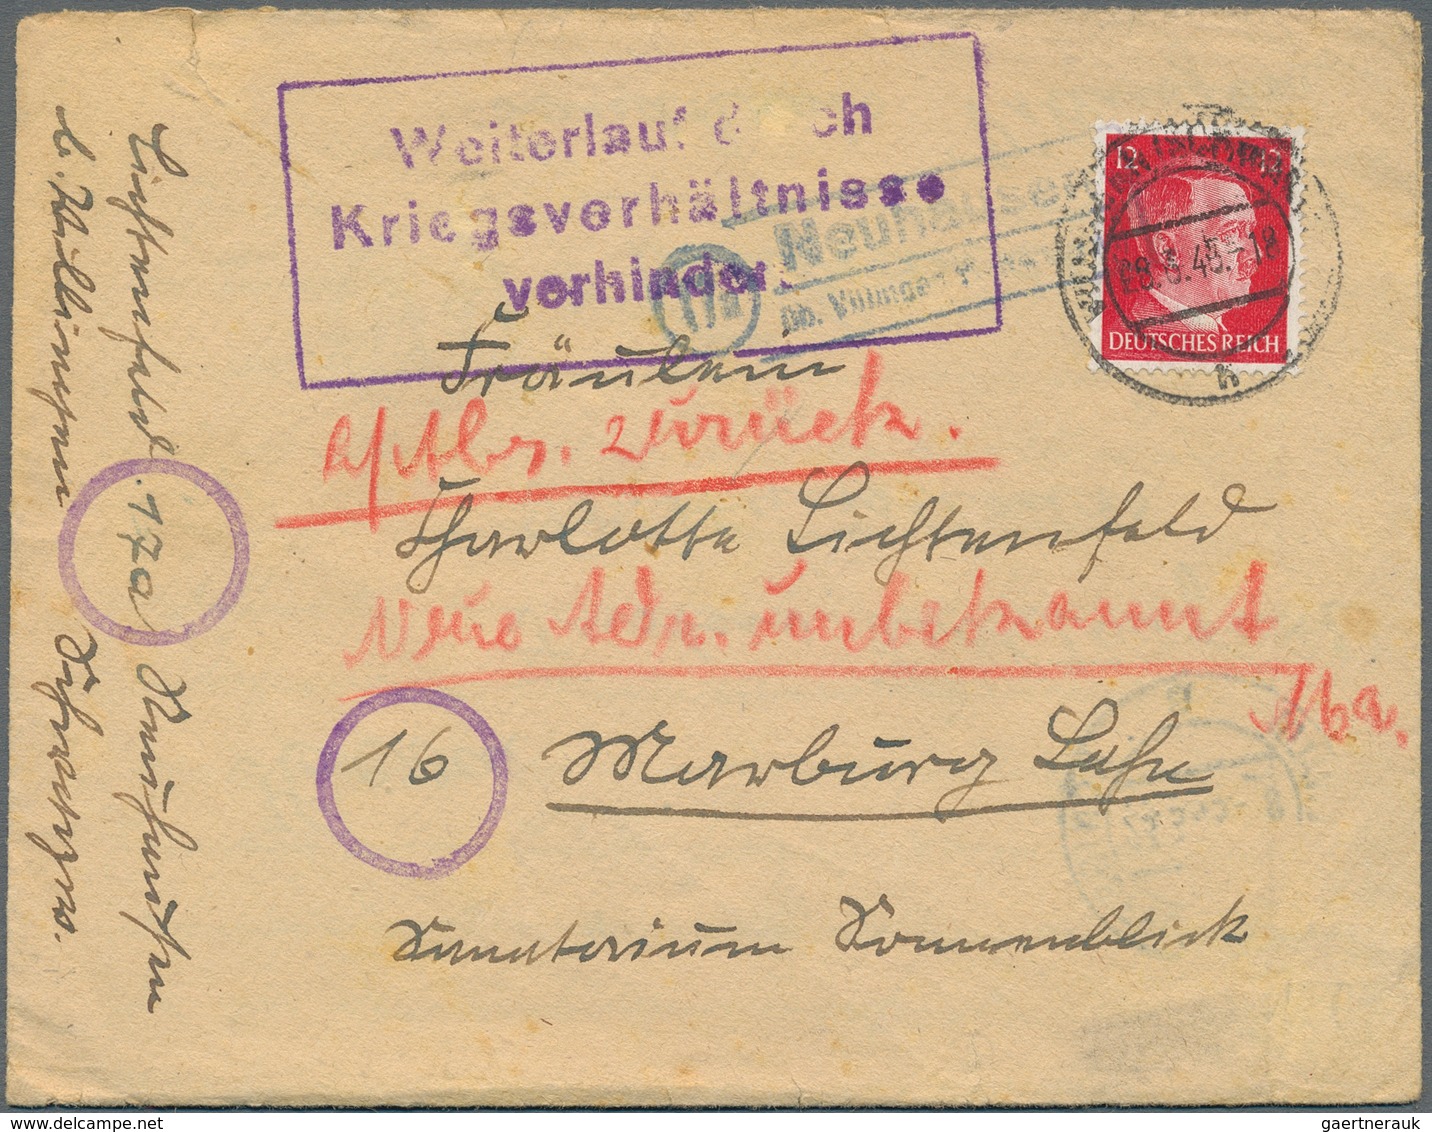 Weiterlauf durch
Kriegsverhältnisse
verhindert
17a
Neuhausen
üb. Villingen
12 12
DEUTSCHES REICH
28.3.45.-18
h
Fräulein
a/Abs. zurück.
Charlotte Lichtenfeld
Neue Adr. unbekannt
16 Marburg Lahn
Sanatorium Sonnenblick
Lichtenfeld. 17a Neuhausen
b. Villingen Schwarzw.
gaertnerauk